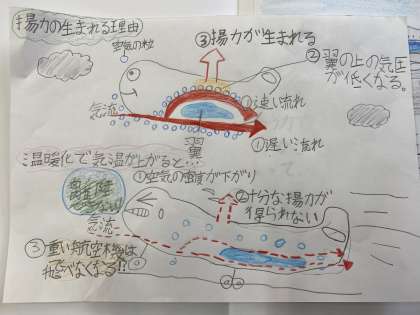 揚力の生まれる理由
空気の粒
③揚力が生まれる
②翼の上の気圧
が低くなる。
気流
①速い流れ
①遅い流れ
翼
温暖化で気温が上がると…?
①空気の密度が下がり
②十分な揚力が
得られない
離陸
できない
気流
③重い航空機は
飛べなくなる!!